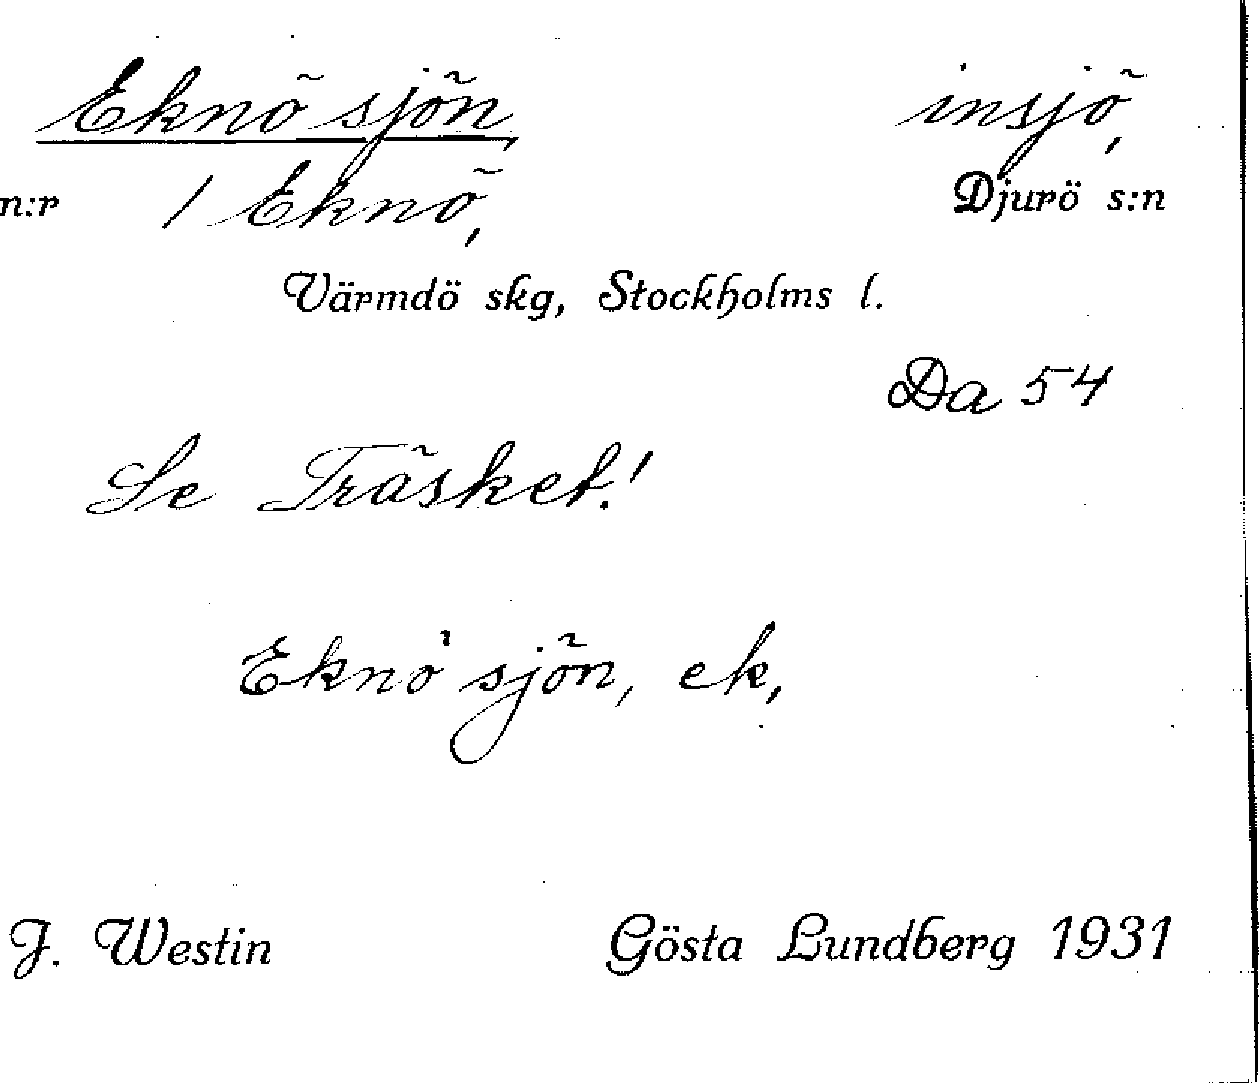 Eknö sjön, insjö,
n:r 1 Eknö, Djurö s:n
Värmdö skg, Stockholms l.
Da 54
Se Träsket!
Eknö'sjön, ek,
J. Westin Gösta Lundberg 1931